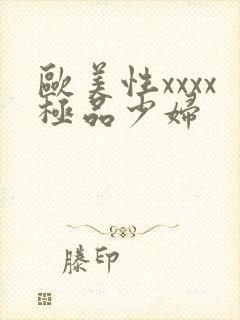 歐美性xxxx
極品少婦
滕印